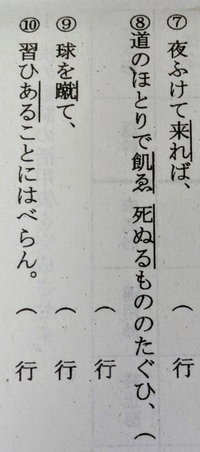 ⑦夜ふけて来れば、（　　行
⑧道のほとりで飢ゑ 死ぬるもののたぐひ、（
（　　行
⑨球を蹴て、（　　行
⑩習ひあることにはべらん。（　　行